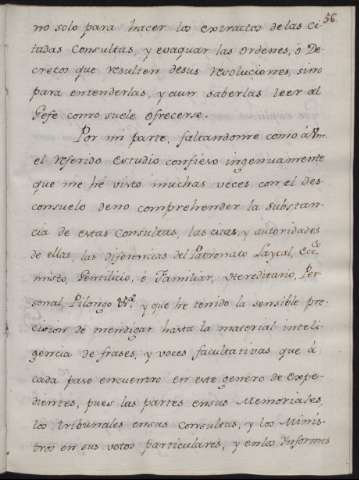 56.
no solo para hacer los extractos delas ci
tadas Consultas, y evaquar las ordenes, ò De
cretos que resulten desus resoluciones, sino
para entenderlas, y aun saberlas leer al
Gefe como suele ofrecerse.
Por mi parte, faltandome como à Vm.
el referido estudio confieso ingenuamente
que me hè visto muchas veces con el des
consuelo deno comprehender la substan
cia de estas Consultas, las citas, y autoridades
de ellas, las diferencias del Patronato Laycal, Ecco.
misto, Gentilicio, ò Familiar, Hereditario, Per
sonal, Pilongo &c. y que he tenido la sensible pre
cision de mendigar hasta la material inteli
gencia de frases, y voces facultativas que à
cada paso encuentro en este genero de Expe
dientes, pues las partes ensus Memoriales,
los tribunales ensus Consultas, y los Minis
tros en sus votos particulares, y enlos Informes